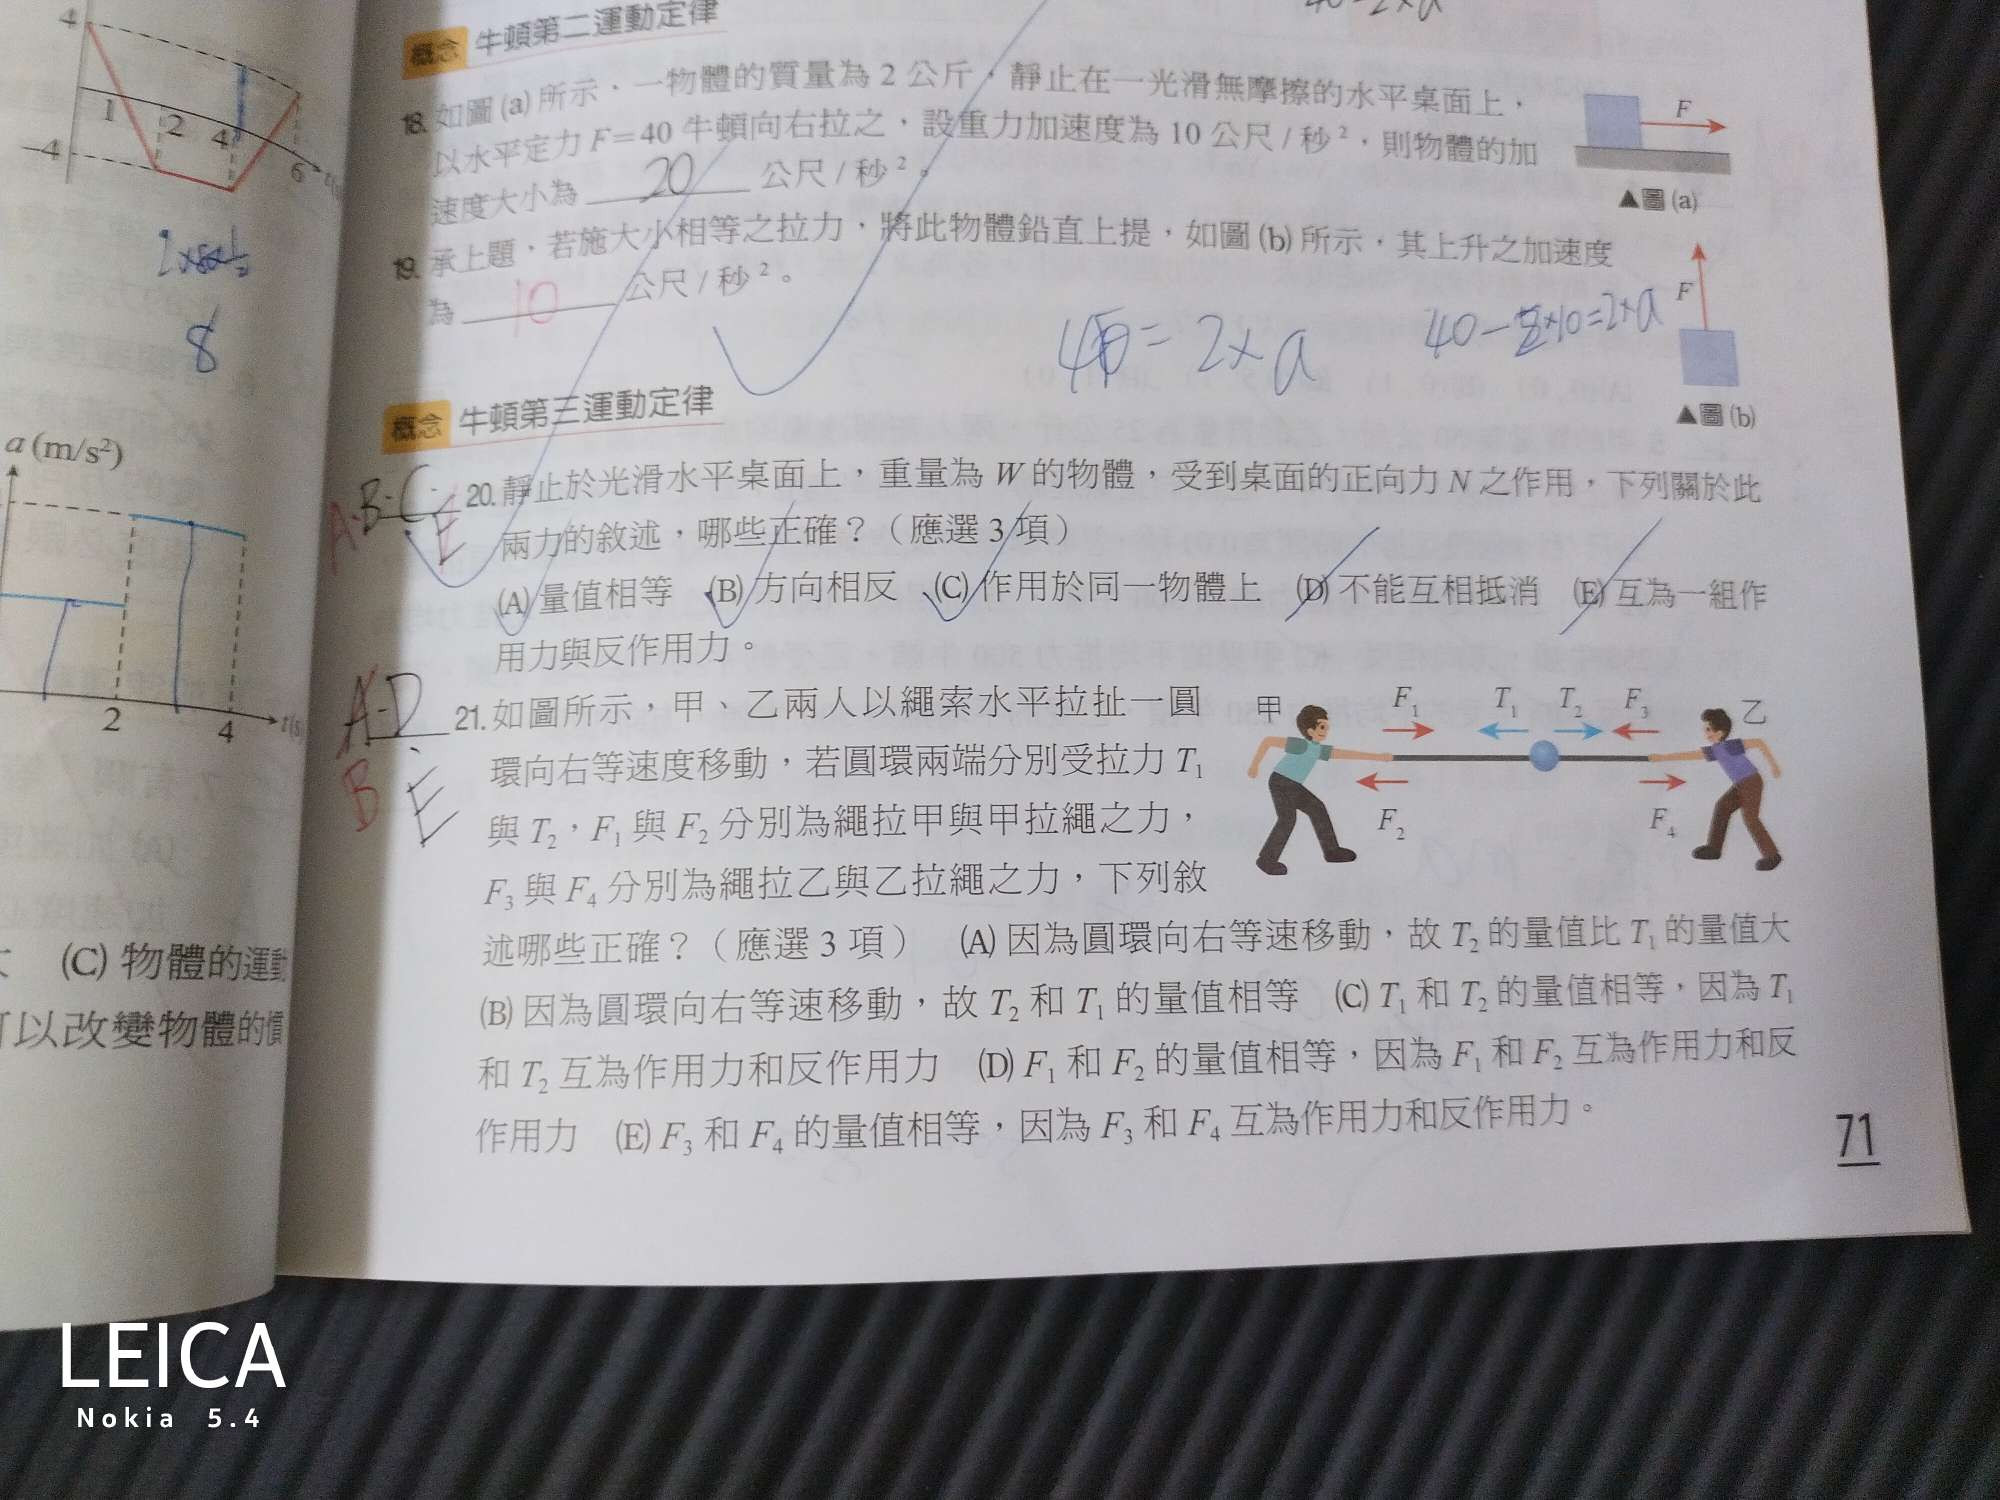 4
-4
1
2
4
6
8
a (m/s²)
2
4
t(s)
(C) 物體的運動
可以改變物體的慣
概念 牛頓第二運動定律
18. 如圖 (a) 所示，一物體的質量為 2 公斤，靜止在一光滑無摩擦的水平桌面上，
以水平定力 F=40 牛頓向右拉之，設重力加速度為 10 公尺 / 秒²，則物體的加
速度大小為 20 公尺 / 秒²。
F
▲圖 (a)
19. 承上題，若施大小相等之拉力，將此物體鉛直上提，如圖 (b) 所示，其上升之加速度
為 10 公尺 / 秒²。
= 2×a
40-2×10=2×a
F
▲圖 (b)
概念 牛頓第三運動定律
A.B.C. 20. 靜止於光滑水平桌面上，重量為 W 的物體，受到桌面的正向力 N 之作用，下列關於此
兩力的敘述，哪些正確？（應選 3 項）
(A) 量值相等 (B) 方向相反 (C) 作用於同一物體上 (D) 不能互相抵消 (E) 互為一組作
用力與反作用力。
A.D. 21. 如圖所示，甲、乙兩人以繩索水平拉扯一圓
B E
環向右等速度移動，若圓環兩端分別受拉力 T₁
與 T₂，F₁ 與 F₂ 分別為繩拉甲與甲拉繩之力，
F₃ 與 F₄ 分別為繩拉乙與乙拉繩之力，下列敘
甲 F₁ T₁ T₂ F₃ 乙
F₂ F₄
述哪些正確？（應選 3 項） (A) 因為圓環向右等速移動，故 T₂ 的量值比 T₁ 的量值大
(B) 因為圓環向右等速移動，故 T₂ 和 T₁ 的量值相等 (C) T₁ 和 T₂ 的量值相等，因為 T₁
和 T₂ 互為作用力和反作用力 (D) F₁ 和 F₂ 的量值相等，因為 F₁ 和 F₂ 互為作用力和反
作用力 (E) F₃ 和 F₄ 的量值相等，因為 F₃ 和 F₄ 互為作用力和反作用力。
71
LEICA
Nokia 5.4